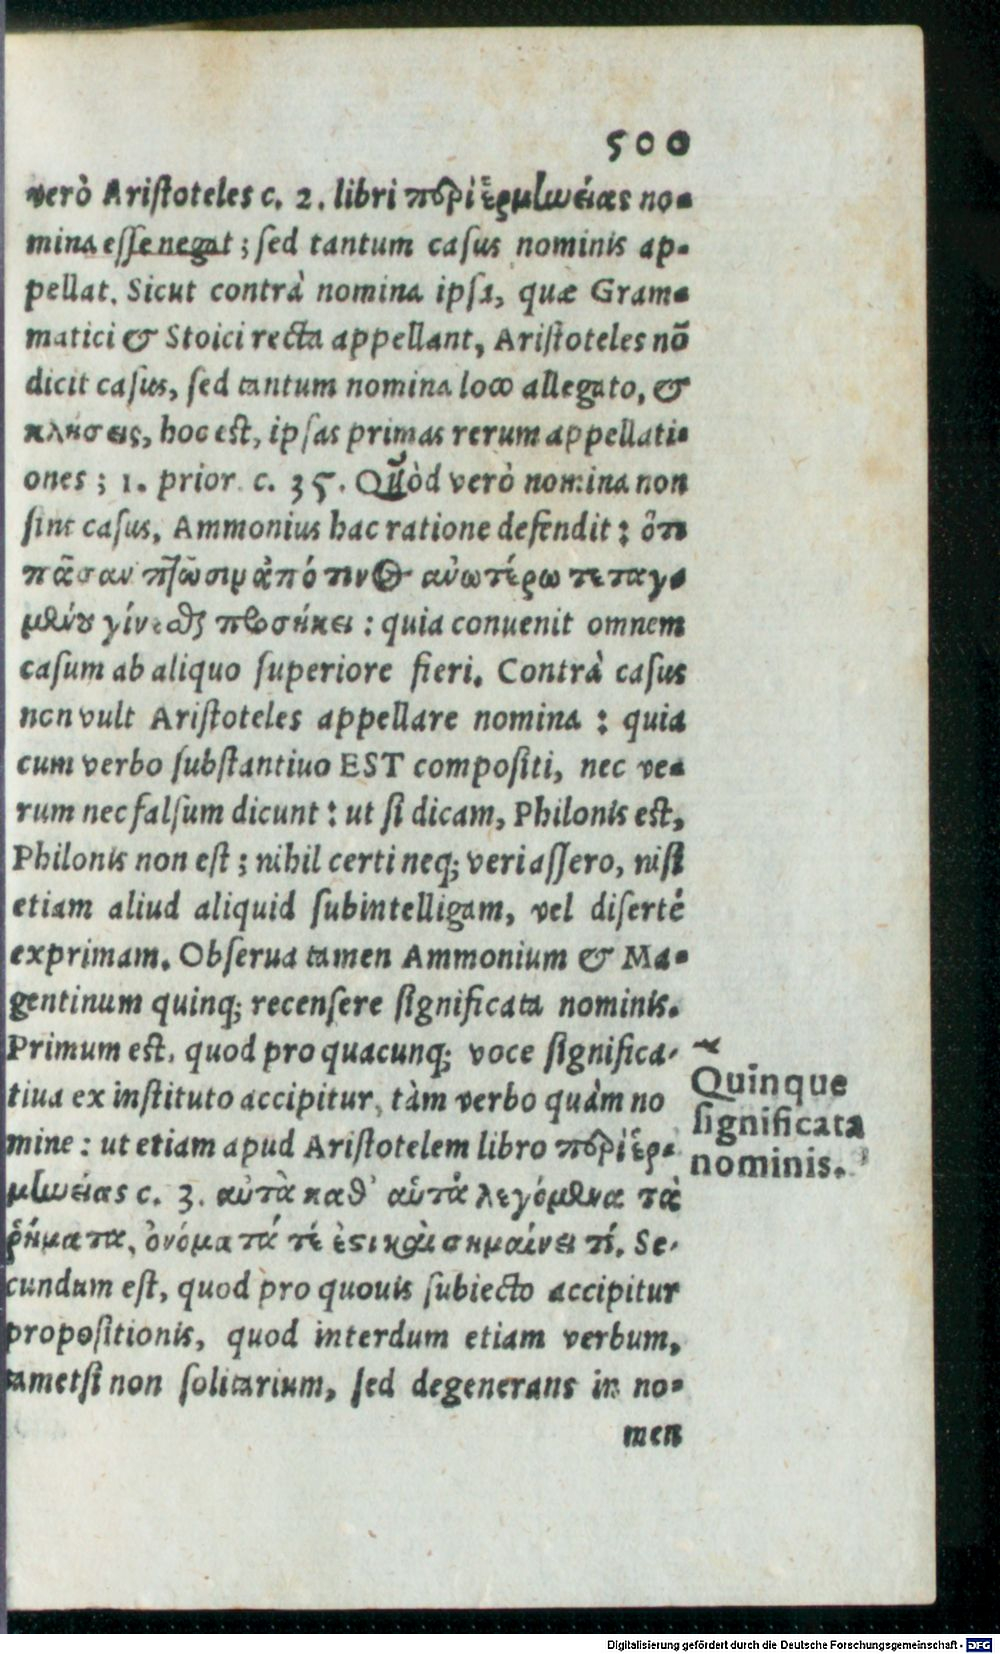 500
verò Aristoteles c. 2. libri περὶ ἑρμηνείας no-
mina esse negat; sed tantum casus nominis ap-
pellat. Sicut contrà nomina ipsa, quæ Gram-
matici & Stoici recta appellant, Aristoteles nō
dicit casus, sed tantum nomina loco allegato, &
κλήσεις, hoc est, ipsas primas rerum appellati-
ones; 1. prior c. 35. Quòd verò nomina non
sint casus, Ammonius hac ratione defendit: ὅτι
πᾶσαν πτῶσιν ἀπό τινος ἀνωτέρω τεταγ-
μένου γίνεσθαι προσήκει: quia conuenit omnem
casum ab aliquo superiore fieri. Contrà casus
non vult Aristoteles appellare nomina: quia
cum verbo substantiuo EST compositi, nec ve-
rum nec falsum dicunt: ut si dicam, Philonis est,
Philonis non est; nihil certi neq; veri assero, nisi
etiam aliud aliquid subintelligam, vel disertè
exprimam. Obserua tamen Ammonium & Ma-
gentinum quinq; recensere significata nominis.
Primum est, quod pro quacunq; voce significa-
tiua ex instituto accipitur, tàm verbo quàm no
mine: ut etiam apud Aristotelem libro περὶ ἑρ-
μηνείας c. 3. αὐτὰ καθ' αὑτὰ λεγόμενα τὰ
ῥήματα, ὀνόματά τέ ἐστι καὶ σημαίνει τί. Se-
cundum est, quod pro quouis subiecto accipitur
propositionis, quod interdum etiam verbum,
tametsi non solitarium, sed degenerans in no-
men
Quinque
significata
nominis.
Digitalisierung gefördert durch die Deutsche Forschungsgemeinschaft - DFG